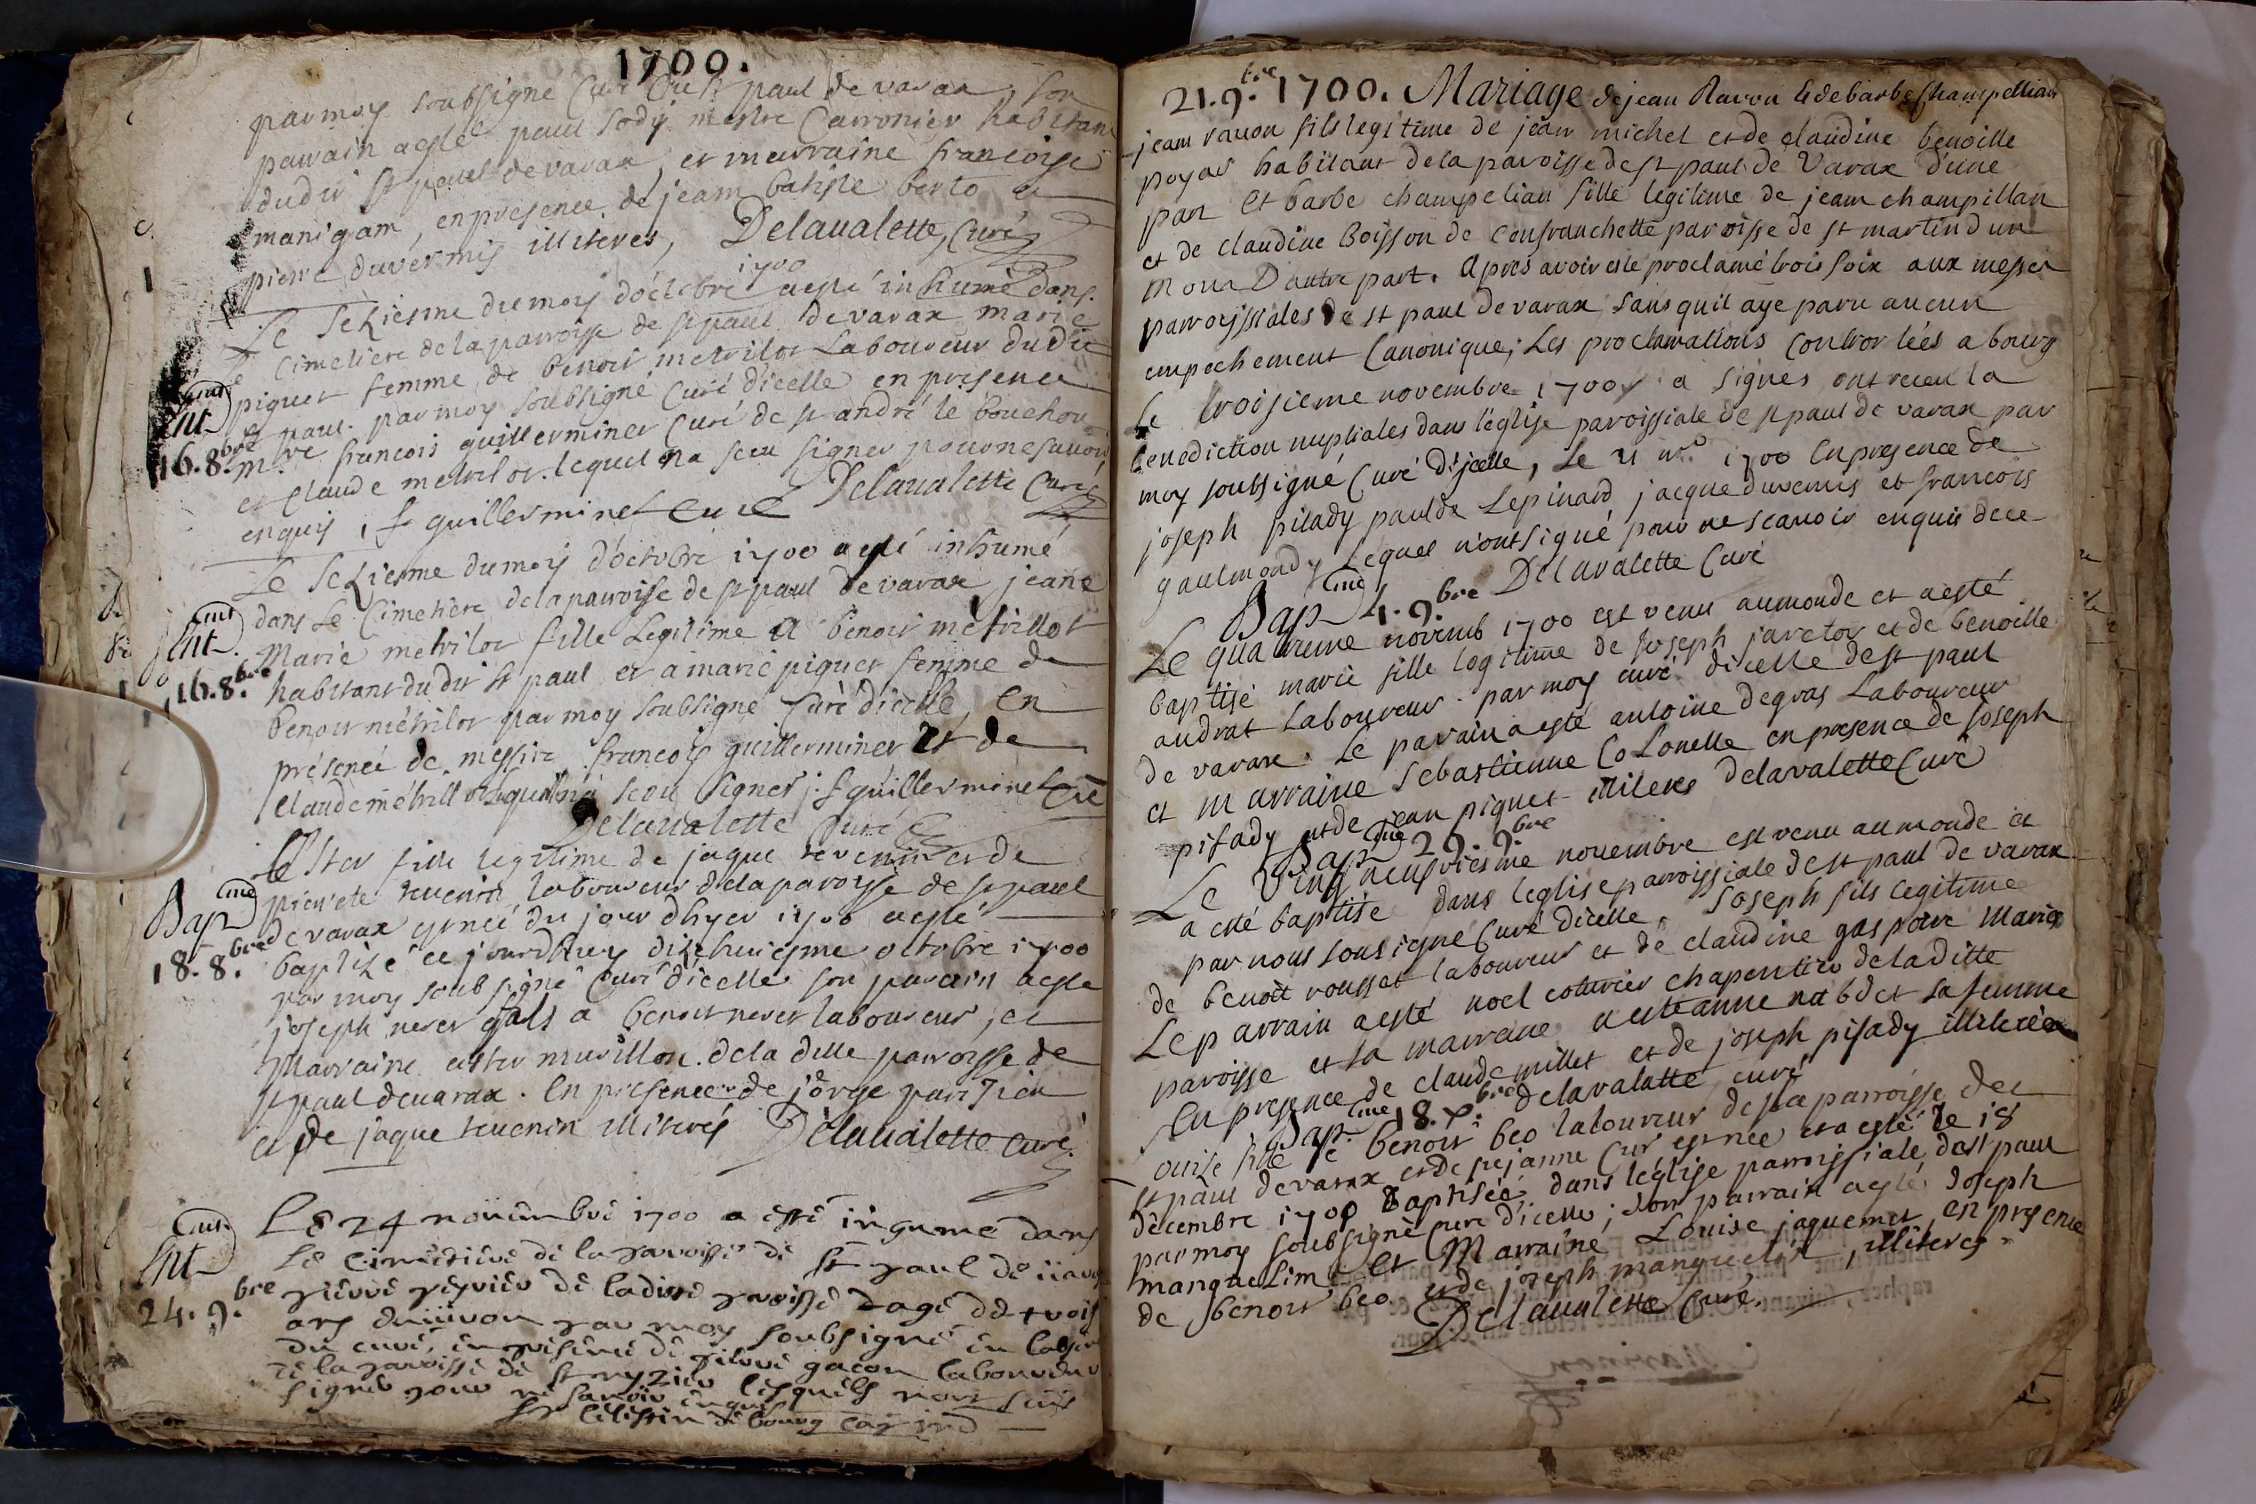 1700.
par moy soubsigné Curé dudit st paul de varax, son
parrain a esté paul Sody mestre Carronier habitant
dudit st paul de varax, et marraine francoise
manigam, en presence de jeam batiste berto et
pierre duvermis illiteres, Delaualette, Curé
Le seziesme du mois d'octobre 1700 a esté inhumé dans
le Cimetiere de la parroisse de st paul de varax marie
piquet femme de benoit metrilot Laboureur dudit
st paul par moy soubsigné Curé d'icelle en presence
m.re francois guillerminet Curé de st andré le bouchou
et Claude metrilot. lequel na sceu signer pour ne savoir
enquis, f guillerminet Curé Delaualette Curé
Ent
16. 8.bre
Le seziesme du mois d'octobre 1700 a esté inhumé
dans Le Cimetiere de la parroisse de st paul de varax jeane
Marie metrilot fille Legitime a benoit metrillot
habitant dudit st paul et a marie piquet femme de
benoit métrilot par moy soubsigné Curé d'icelle, en
présence de messire francois guillerminet et de
Claude métrillot lequel na sceu signer j. f guillerminet Curé
Delaualette Curé
Ent
16. 8.bre
Ester fille legitime de jaque tevenin et de
pierrete tevenin, laboureur de la paroisse de st paul
de varax est neé du jour d'hyer 1700 a esté
baptizé ce jourd'huy dizehuiesme octobre 1700
par moy soubsigné Curé d'icelle son parrain a este
joseph neret fals a benoit neret laboureur, et
Marraine ester murillon de la ditte parroisse de
st paul de varax. en presence de jorge
et de jaque tevenin illiterés Delaualette curé.
Bap
18. 8.bre
Le 24 nouembre 1700 a esté ingumé dans
Le cimetiere de la paroisse de st paul de uarax
pierre de la dite paroisse dagé de trois
ans enuiron par moy soubsigné en labsence
du curé, en presence de pierre gacon laboureur
de la paroisse de st lesquels nont sceu
signer pour ne sauoir enquis
de bourg
Ent
24. 9.bre
21. 9.bre 1700. Mariage de jean Ravou & de barbe Champellian
jeam rauou fils legitime de jean michel et de claudine benoille
poyas habitant de la paroisse de st paul de Varax d'une
part Et barbe champelian fille legitime de jeam champillan
et de claudine Boisson de Confranchette paroisse de st martin d un
Mont D'autre part. Apres avoir esté proclamé trois foix aux messes
parroissiales de st paul de varax sans quil aye paru aucun
empechement Canonique; Les proclamations controrlées a bourg
Le troisieme novembre 1700 a signés ont receu la
benediction nuptiales dans l'église paroissiale de st paul de varax par
moy soubsigné Curé d'jcelle, Le 21 n.re 1700 En presence de
joseph pitady paul de Lepinard jacque duvernis et francois
gaulmond, Lequel n'ont signé pour ne scavoir enquis de ce
Delavalette Curé
Bap 4. 9.bre
Le quatrieme novemb 1700 est venu au monde et a esté
baptisé marie fille legitime de Joseph jaretot et de benoille
audrat Laboureur par moy curé dicelle de st paul
de varax. Le parain a esté antoine degras Laboureur
et marraine Sebastienne Colonelle en presence de Joseph
pitady et de jean piquet illiteres Delavalette Curé
Bap 29. 9.bre
Le Vingneufviesme novembre est venu au monde et
a esté baptise dans l'eglise parroissiale de st paul de varax
par nous sousigné Curé dicelle. Joseph fils legitime
de benoit rousset laboureur et de claudine gaspare Mariés
Le parrain a esté noel couturier chapentier de la ditte
paroisse et la marraine a esté anne nabdet sa femme
En presence de claude millet et de joseph pitady illiterés
delavalatte curé
Bap. 18. X.bre
ouise fille de benoit beo laboureur de la parroisse de
st paul de varax et de jejanne Cur est née et a esté le 18
décembre 1700 Baptisée dans léglise parroissiale de st paul
par moy soubsigné Curé d'icelle; son parrain a esté Joseph
manguelin Et Marraine Louise jaquemet, en presence
de benoit beo et de joseph manguelin, illiteres
Delaualette Curé.